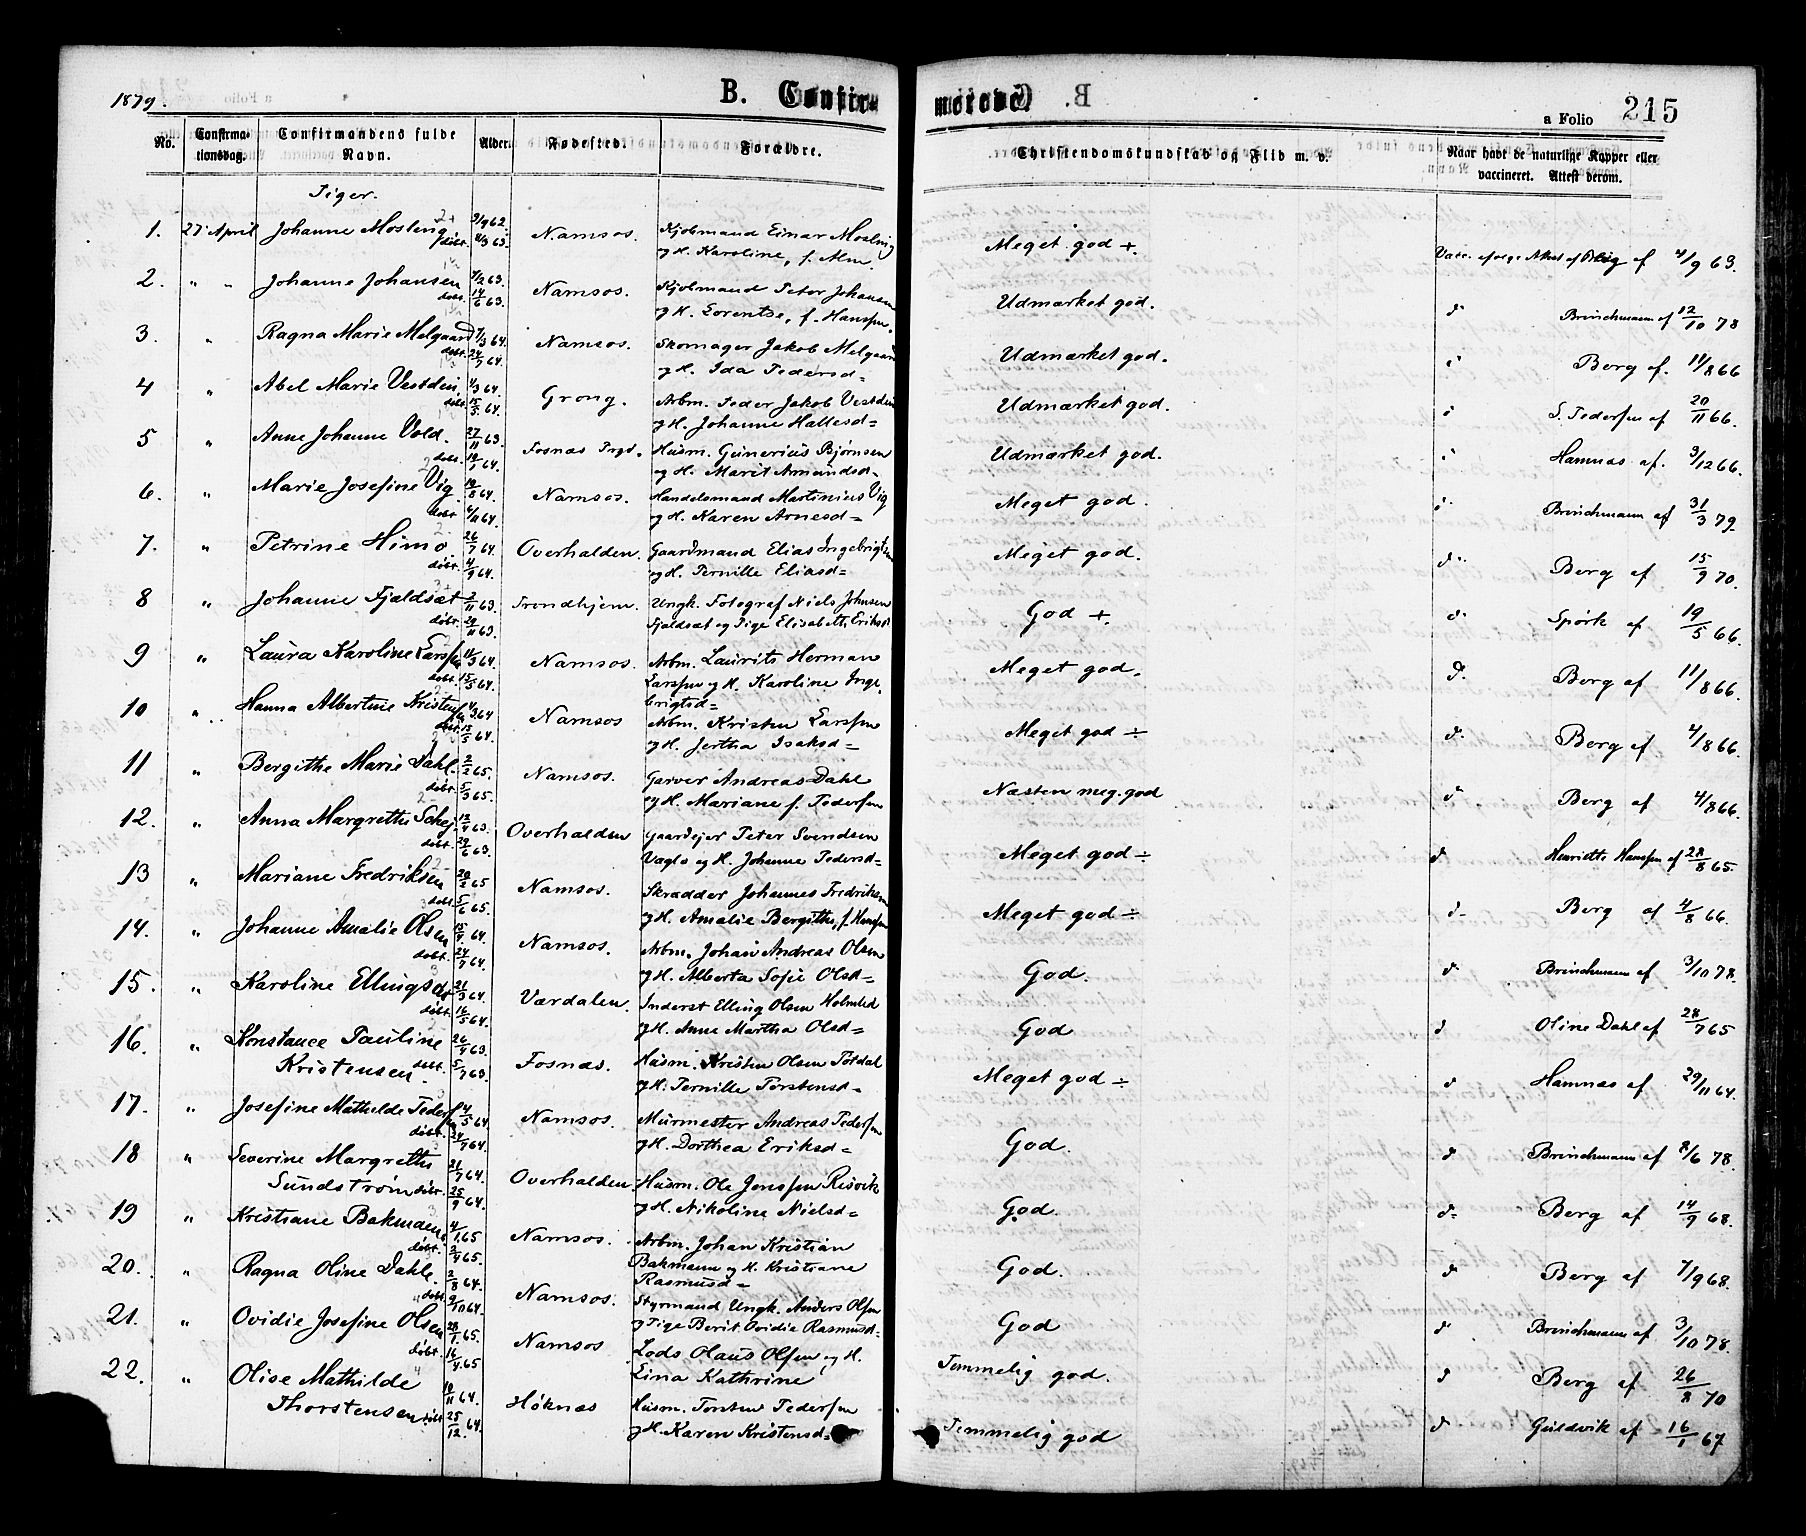 1879.
B. Confir-
merede.
215
a Folio
No.
Confirma-
tionsdag.
Confirmandens fulde
Navn.
Alder.
Fødested.
Forældre.
Christendomskundskab og Flid m. v.
Naar havt de naturlige Kopper eller
vaccineret. Attest derom.
Piger.
1. 27 April Johanne Mosling 9/9 62. Namsos. Kjøbmand Einar Mosling Meget god +
døbt 4/3 63. og H. Karoline, f. Alm. 4/9 63.
2. „ „ Johanne Johansen 4/2 63. Namsos. Kjøbmand Peter Johansen Udmærket god.
døbt. 14/6 63. og H. Lorentse, f. Hanssen. d Brinchmann af 12/10 78
3. „ Ragna Marie Melgaard 7/3 64. Namsos. Skomager Jakob Melgaard Udmærket god.
døbt. 24/7 64. og H. Ida Pedersd= Berg af. 11/8 66
4 „ Abel Marie Vestdin 4/3 64. Grong. Arbm. Peder Jakob Vestdin Udmærket god.
døbt. 15/5 64. og H. Johanne Hallesd= S. Pedersen af 20/11 66.
5 „ Anne Johanne Vold. 27/11 63. Fosnæs Prgd. Husm. Gunerius Bjørnsen Udmærket god.
døbt. 10/1 64. og H. Marit Amundsd= Hamnæs af. 3/12 66.
6. „ Marie Josefine Vig 10/8 64. Namsos. Handelsmand Martinius Vig Meget god.
døbt 6/11 64. og H. Karen Arnesd= Brinchmann af 31/3 79.
7. „ Petrine Himo 26/7 64. Overhalden. Gaardmand Elias Ingebrigtsen Meget god.
døbt. 4/9 64. og H. Pernille Eliasd= d Berg af 15/9 70.
8 „ Johanne Fjeldsæt 2/11 63. Trondhjem. Ungk. Fotograf Niels Johnsen God +.
døbt. 29/11 63. Fjeldsæt og Pige Elisabeth Eriksd d Spörk af 19/5 66.
9 „ Laura Karoline Larssen 11/3 64. Namsos. Arbm. Laurits Herman Meget god.
døbt. 15/5 64. Larssen og H. Karoline Inge-
brigtsd= d. Berg af 11/8 66.
10 „ Hanna Albertine Kristensen 4/3 64 Namsos Arbm. Kristen Larssen Meget god ÷
døbt. 15/5 64. og H. Jertha Isaksd= d. Berg af 4/8 66.
11 „ Bergithe Marie Dahl. 2/2 65. Namsos. Garver Andreas Dahl Næsten meg. god
døbt. 5/3 65. og H. Mariane f. Pedersen d Berg af 4/8 66.
12. „ Anna Margrethe Skej. 12/4 63. Overhalden Gaardejer Peter Svendsen Meget god ÷
døbt. 29/6 63. Vaglo og H. Johanne Pedersd= d Henriette Hanssen af 28/8 65.
13 „ Mariane Fredriksen 20/2 65 Namsos. Skrædder Johannes Fredriksen Meget god ÷
døbt. 5/6 65. og H. Amalie Bergithe, f. Hanssen d Berg af 4/8 66.
14. „ Johanne Amalie Olsen 15/4 64. Namsos. Arbm. Johan Andreas Olsen God.
døbt. 24/7 64. og H. Alberta Sofie Olsd= d Brinchmann af 3/10 78.
15. „ Karoline Ellingsd 21/3 64. Værdalen. Inderst Elling Olsen Holmlid God
døbt. 16/5 64. og H. Anne Martha Olsd= d Oline Dahl af 28/7 65
16. „ Konstance Pauline 26/4 63. Fosnæs. Husm. Kristen Olsen Tötdal Meget god ÷
Kristensen. døbt. 5/7 63. og H. Pernille Torstensd= d Hamnæs af 29/11 64.
17. „ Josefine Mathilde Pedersen 4/5 64 Namsos. Murmester Andreas Pedersen God.
døbt. 24/7 64. og H. Dorthea Eriksd= d Brinchmann af 8/6 78.
18 „ Severine Margrethe 21/7 64. Overhalden. Husm. Ole Jenssen Risvik God.
Sundstrøm døbt. 25/9 64. og H. Nikoline Nielsd= d Berg af 14/9 68.
19 „ Kristiane Bakmann 4/1 65 Namsos. Arbm. Johan Kristian God.
døbt. 2/4 65. Bakmann og H. Kristiane
Rasmusd= d Berg af 7/9 68.
20. „ Ragna Oline Dahle. 2/8 64. Namsos. Styrmand Ungk. Anders Olsen God
døbt. 9/10 64. og Pige Berit Ovidie Rasmusd= d Brinchmann af 3/10 78.
21. „ Ovidie Josefine Olsen 28/1 65. Namsos Lods Olaus Olsen og H. Temmelig god.
døbt. 16/4 65 Lina Kathrine d Berg af 26/8 70
22. „ Olise Mathilde 10/11 64. Høknæs Husm. Torsten Pedersen Temmelig god
Thorstensen døbt 25/12 64. og H. Karen Kristensd= d Guldvik af 16/1 67